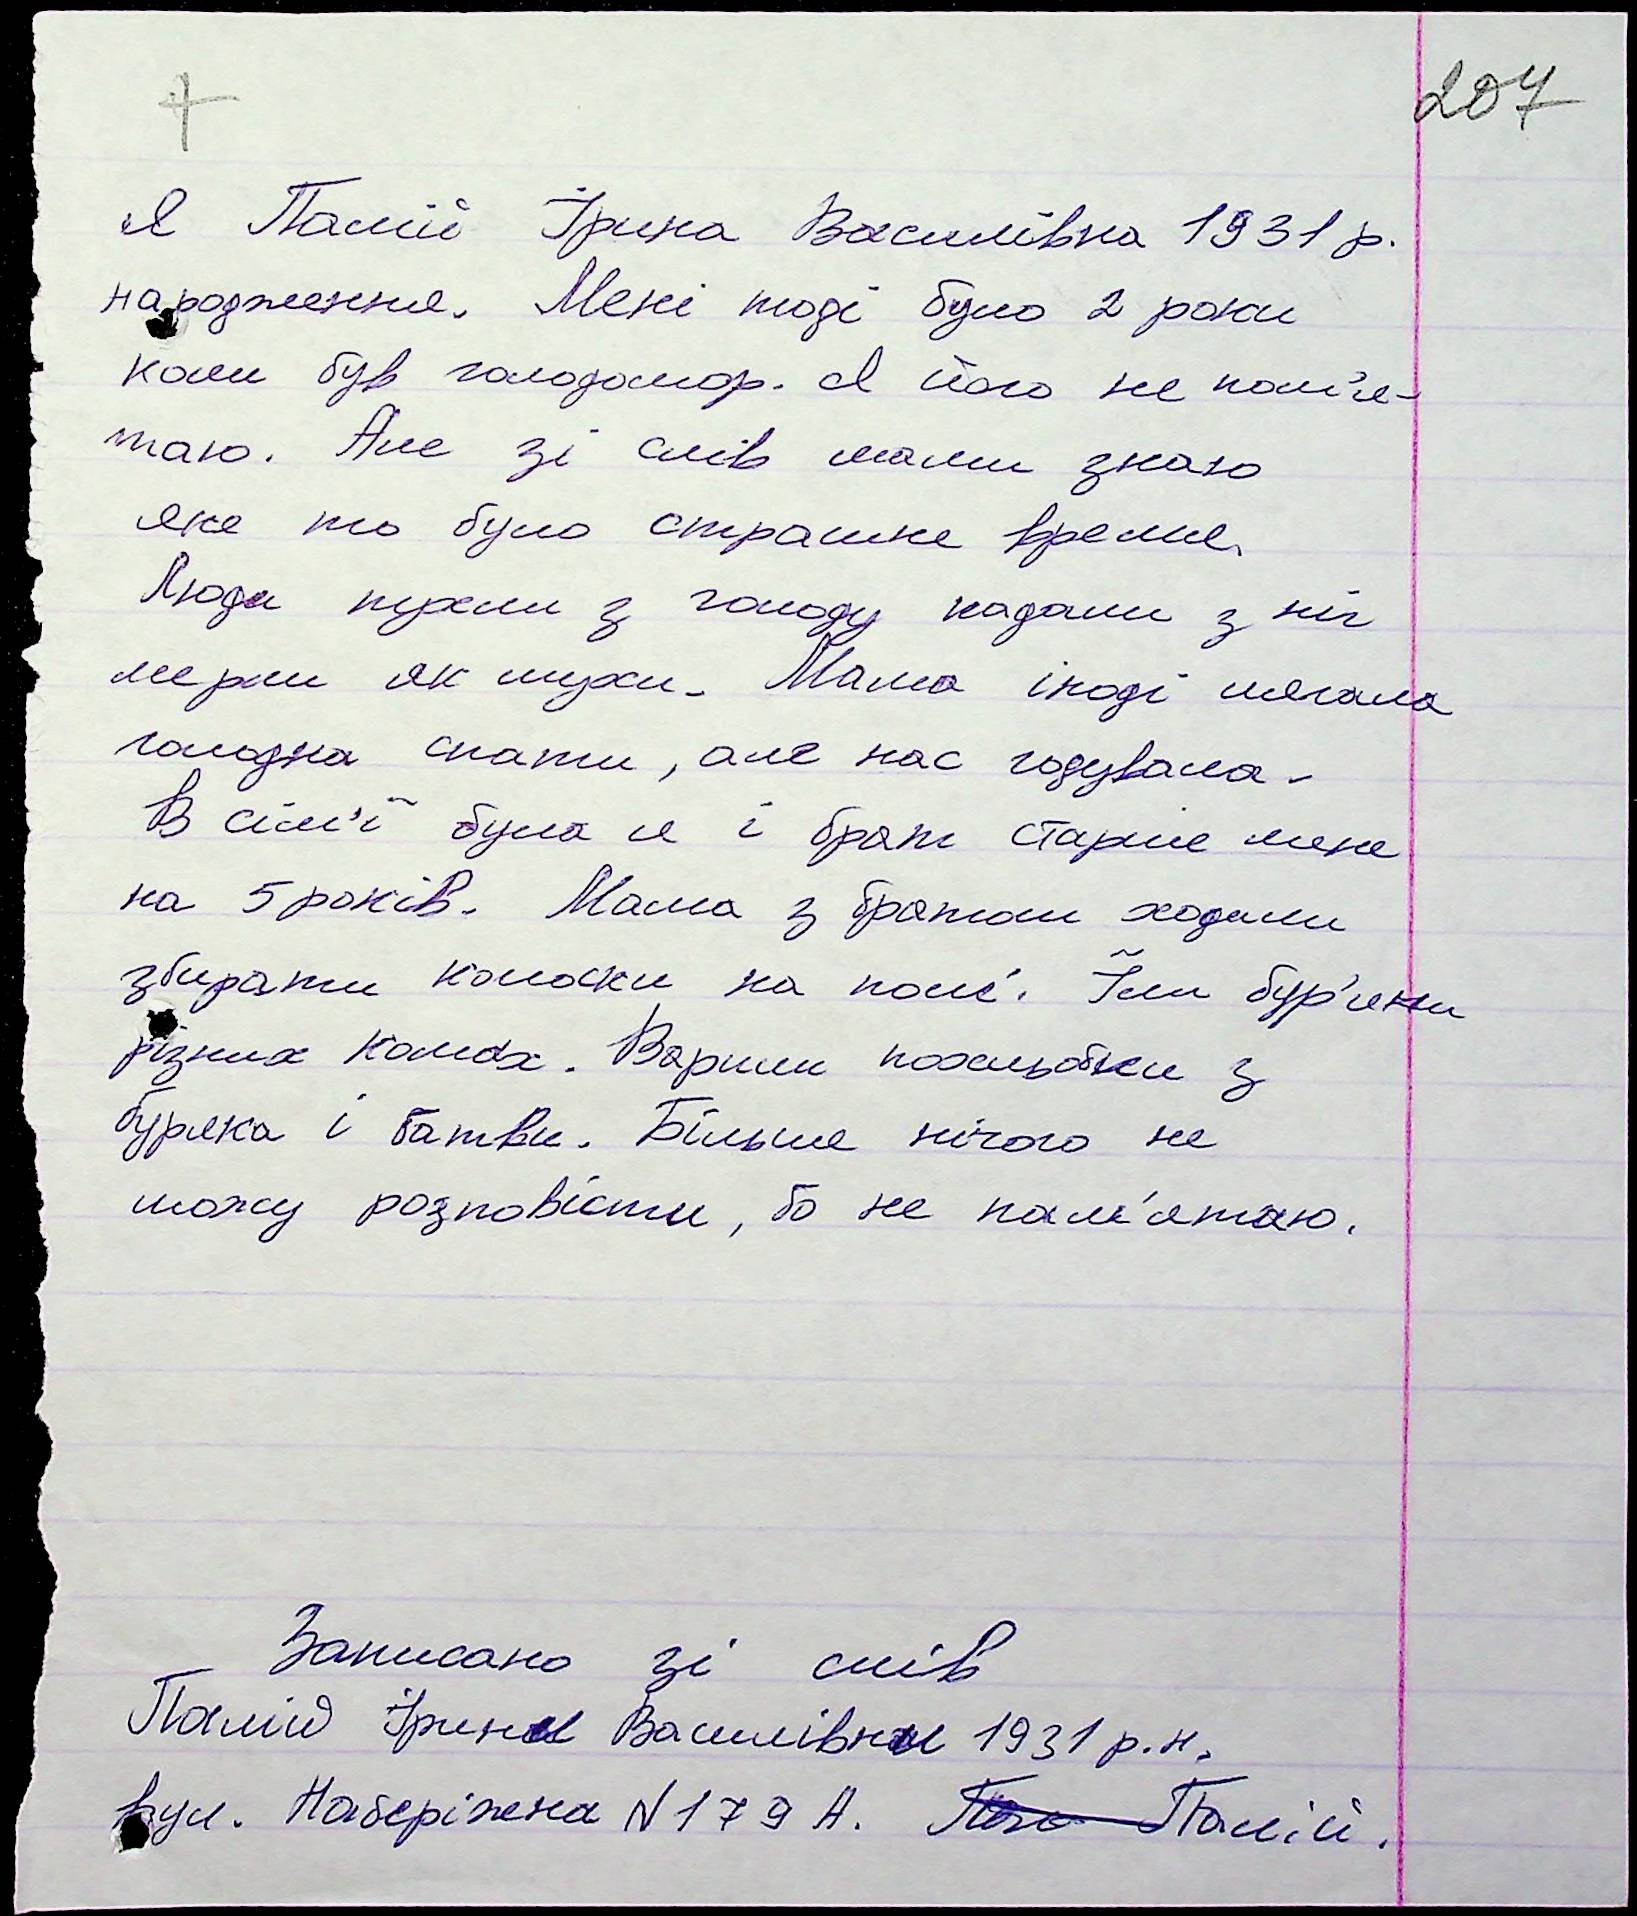 207
Я Палій Ірина Василівна 1931 р.
народження. Мені тоді було 2 роки
коли був голодомор. Я його не пам'я-
таю. Але зі слів мами знаю
яке то було страшне время.
Люди пухли з голоду падали з ніг
мерли як мухи. Мама іноді лягала
голодна спати, але нас годувала.
В сім'ї була я і брат старше мене
на 5 років. Мама з братом ходили
збирати колоски на полі. Їли бур'яни
різних комах. Варили похльобки з
буряка і батви. Більше нічого не
можу розповісти, бо не пам'ятаю.
Записано зі слів
Палій Ірини Василівни 1931 р.н.
вул. Набєріжна N 179 А. Палій.